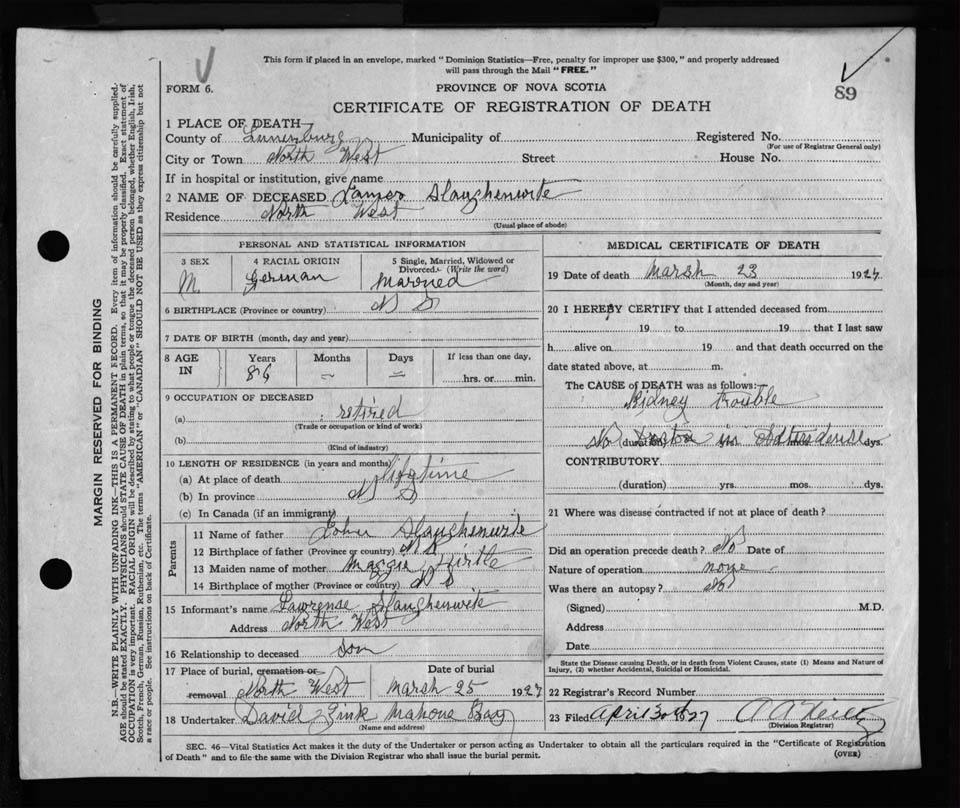 This form if placed in an envelope, marked "Dominion Statistics—Free, penalty for improper use $300," and properly addressed
will pass through the Mail "FREE."
FORM 6.
PROVINCE OF NOVA SCOTIA
89
CERTIFICATE OF REGISTRATION OF DEATH
1 PLACE OF DEATH—
County of Lunenburg Municipality of Registered No.
(For use of Registrar General only)
City or Town North West Street House No.
If in hospital or institution, give name
2 NAME OF DECEASED James Slaughenwite
Residence North West
(Usual place of abode)
PERSONAL AND STATISTICAL INFORMATION
3 SEX 4 RACIAL ORIGIN 5 Single, Married, Widowed or Divorced. (Write the word)
M. German Married
6 BIRTHPLACE (Province or country) N S
7 DATE OF BIRTH (month, day and year)
8 AGE IN Years Months Days If less than one day,
86 – – hrs. or min.
9 OCCUPATION OF DECEASED
(a) retired
(Trade or occupation or kind of work)
(b)
(Kind of industry)
10 LENGTH OF RESIDENCE (in years and months)
(a) At place of death Lifetime
(b) In province N S
(c) In Canada (if an immigrant)
Parents
11 Name of father John Slaughenwite
12 Birthplace of father (Province or country) N S
13 Maiden name of mother Maggie Hirtle
14 Birthplace of mother (Province or country) N S
15 Informant's name Lawrense Slaughenwite
Address North West
16 Relationship to deceased son
17 Place of burial, cremation or removal Date of burial
North West Marsh 25 1927
18 Undertaker David Zink Mahone Bay
(Name and address)
MEDICAL CERTIFICATE OF DEATH
19 Date of death Marsh 23 1927
(Month, day and year)
20 I HEREBY CERTIFY that I attended deceased from
19 to 19 that I last saw
h alive on 19 and that death occurred on the
date stated above, at m.
The CAUSE OF DEATH was as follows:
Kidney trouble
No Doctor in
(duration) yrs. mos. dys.
CONTRIBUTORY
(duration) yrs. mos. dys.
21 Where was disease contracted if not at place of death?
Did an operation precede death? No Date of
Nature of operation none
Was there an autopsy? No
(Signed) M.D.
Address
Date
State the Disease causing Death, or in death from Violent Causes, state (1) Means and Nature of
Injury, (2) whether Accidental, Suicidal or Homicidal.
22 Registrar's Record Number
23 Filed April 30 1927
(Division Registrar)
SEC. 46—Vital Statistics Act makes it the duty of the Undertaker or person acting as Undertaker to obtain all the particulars required in the "Certificate of Registration
of Death" and to file the same with the Division Registrar who shall issue the burial permit.
(OVER)
MARGIN RESERVED FOR BINDING
N.B.—WRITE PLAINLY WITH UNFADING INK—THIS IS A PERMANENT RECORD. Every item of information should be carefully supplied.
AGE should be stated EXACTLY. PHYSICIANS should STATE CAUSE OF DEATH in plain terms, so that it may be properly classified. Exact statement of
OCCUPATION is very important. RACIAL ORIGIN will be described by stating to what people or tongue the deceased person belonged, whether English, Irish,
Scotch, French, German, Russian, Ruthenian, etc. The terms "AMERICAN" or "CANADIAN" SHOULD NOT BE USED as they express citizenship but not
a race or people. See instructions on back of Certificate.